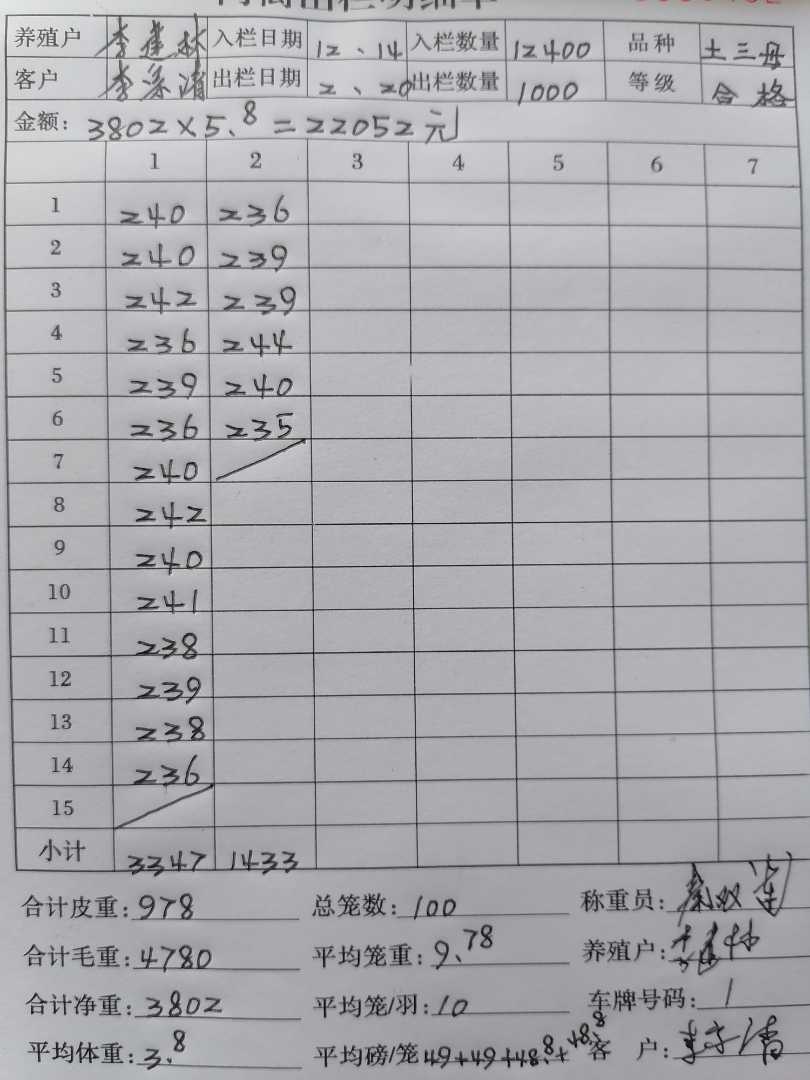 肉禽出栏明细单
养殖户 李建林 入栏日期 12、14 入栏数量 12400 品种 土三母
客户 李景清 出栏日期 2、20 出栏数量 1000 等级 合格
金额: 3802×5.8=22052元
1 2 3 4 5 6 7
1 240 236
2 240 239
3 242 239
4 236 244
5 239 240
6 236 235
7 240
8 242
9 240
10 241
11 238
12 239
13 238
14 236
15
小计 3347 1433
合计皮重: 978 总笼数: 100 称重员:
合计毛重: 4780 平均笼重: 9.78 养殖户: 李建林
合计净重: 3802 平均笼/羽: 10 车牌号码: 1
平均体重: 3.8 平均磅/笼 49+49+48.8+48.8 客 户: